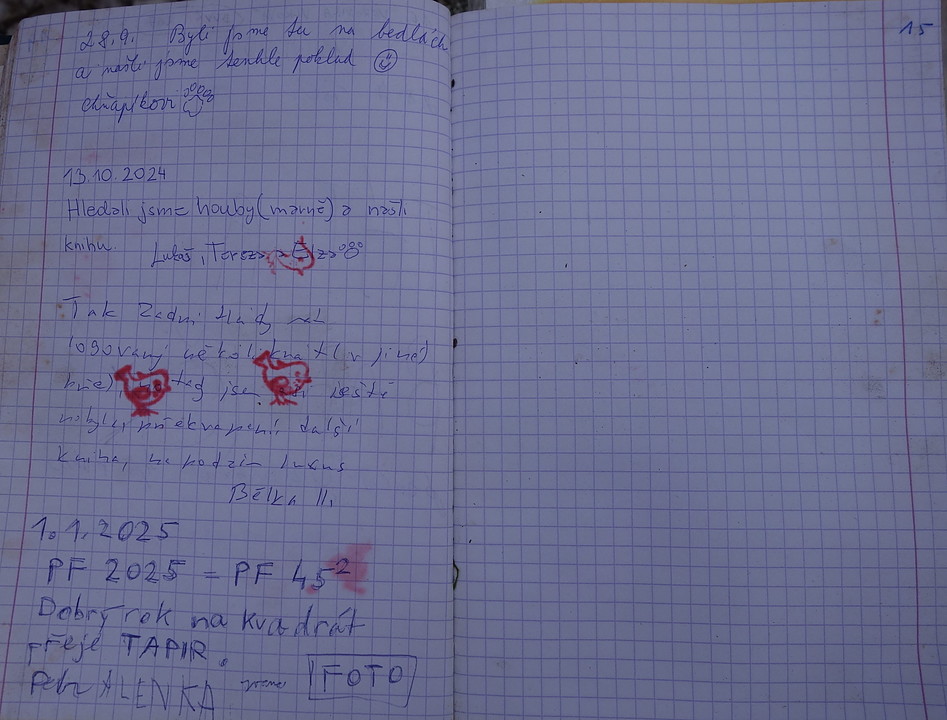 28.9. Byli jsme tu na bedlách
a našli jsme tenhle poklad
Chňapíkovi
13.10.2024
Hledali jsme houby (marně) a našli
knihu Lukáš, Tereza
Tak Zadní
logovaný několikrát (v jiné)
teď jsem ještě
nebyl, překvapení, další
kniha, na podzim luxus
Bělka II.
1.1.2025
PF 2025 = PF 45²
Dobrý rok na kvadrát
přeje TAPIR.
Petr ALENKA FOTO
15